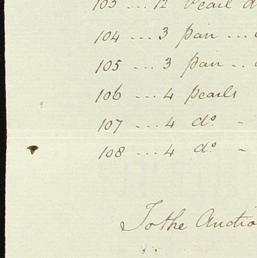 103 ... 12 Pearl d
104 ... 3 pan ...
105 ... 3 pan ..
106 ... 4 pearls
107 ... 4 do -
108 ... 4 do -
To the Auctio